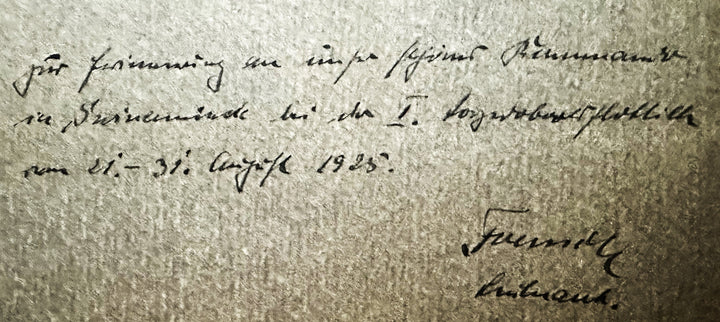 Zur Erinnerung an unser schönes Kommando
in Swinemünde bei der I. Torpedobootsflottille
vom 21.–31. August 1925.
Leutnant.